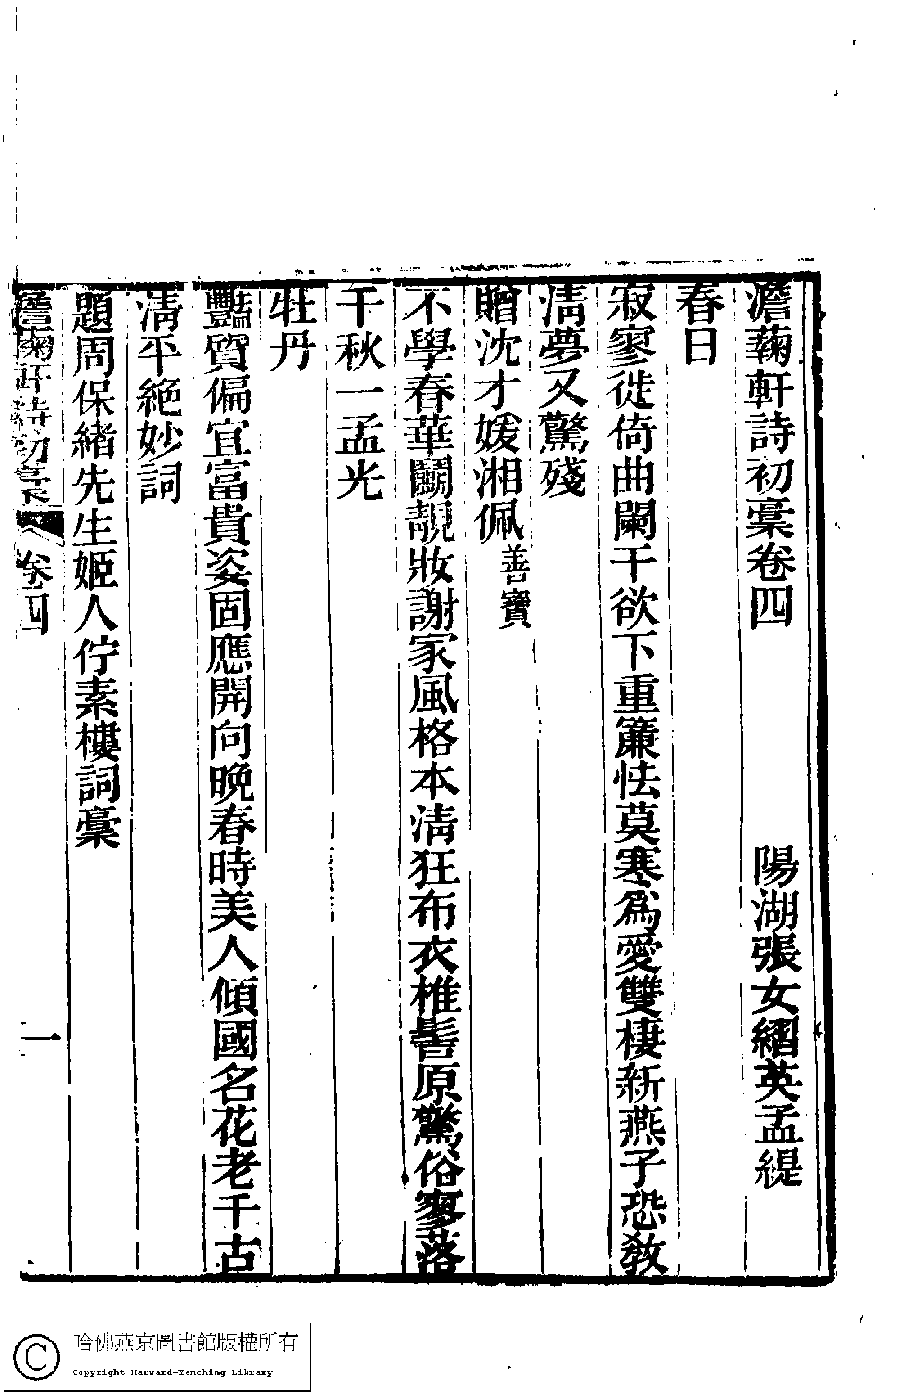 澹蘜軒詩初稾卷四 陽湖張女䌌英孟緹
春日
寂寥徙倚曲闌干欲下重簾怯莫寒爲愛雙棲新燕子恐敎
淸夢又驚殘
贈沈才媛湘佩善寶
不學春華鬭靚妝謝家風格本淸狂布衣椎髻原驚俗寥落
千秋一孟光
牡丹
豔質偏宜富貴姿固應開向晩春時美人傾國名花老千古
淸平絶妙詞
題周保緒先生姬人佇素樓詞稾
澹蘜軒詩初稾 卷四 一
哈佛燕京圖書館版權所有
Copyright Harvard-Yenching Library